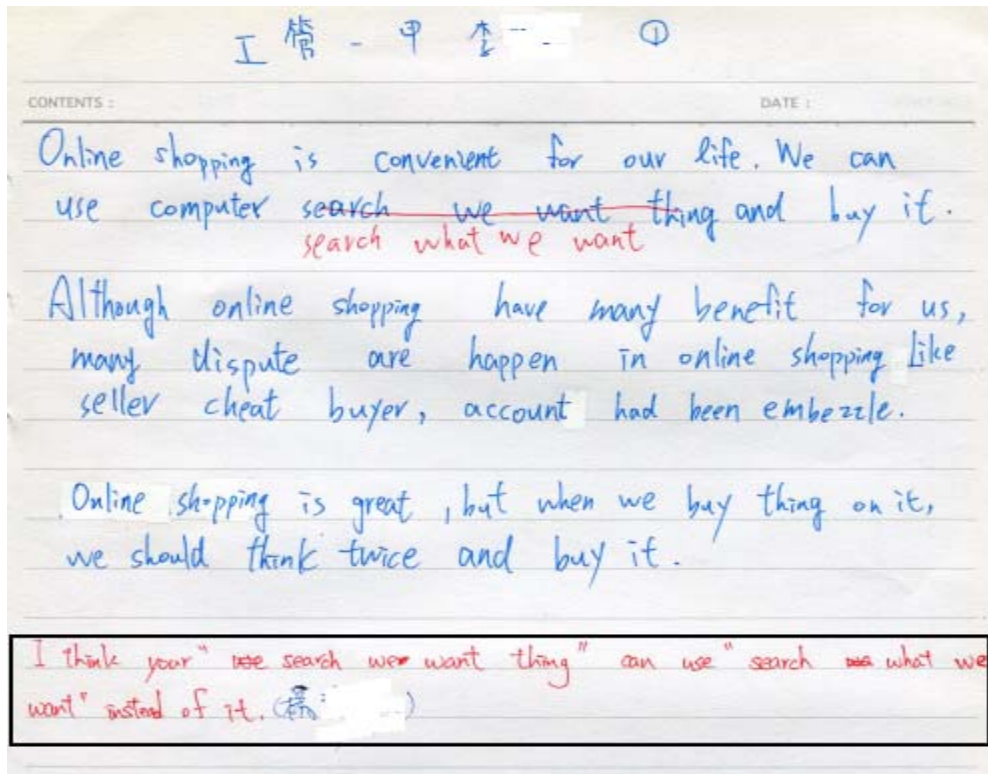 工管一甲 李 ①
CONTENTS : DATE :
Online shopping is convenient for our life. We can
use computer search we want thing and buy it.
search what we want
Although online shopping have many benefit for us,
many dispute are happen in online shopping like
seller cheat buyer, account had been embezzle.
Online shopping is great, but when we buy thing on it,
we should think twice and buy it.
I think your " search we want thing" can use "search what we
want" instead of it. ( )